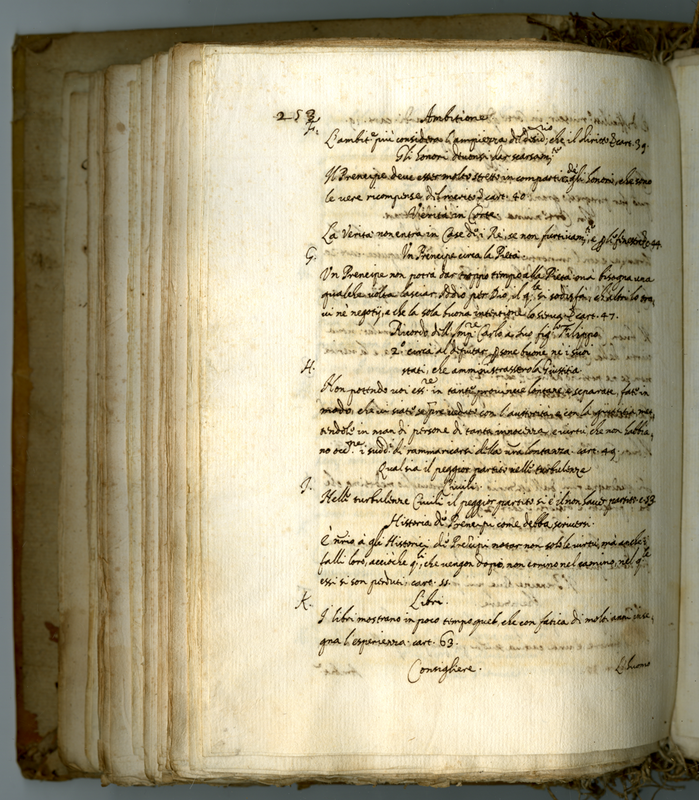 Ambitione
F.
L'ambit.e più considera l'ampiezza del che il diritto cart. 39.
Gli honori devonsi dar scarsam.te
Il Prencipe deve esser molto stretto in compartir gli honori, che sono
le vere ricompense di merito cart. 40
Verità in Corte
La Verità non entra in Case de i Re, se non furtivam.te, e finestre 44
G. Un Principe circa la Pietà.
Un Prencipe non potrà dar troppo tempo alla Pietà, ma bisogna una
qualche volta lasciar Iddio per Dio, il q.le si sodisfa, ch'altri lo
ne negotij, e che la sola buona intentione lo cart. 47.
Ricordo dell'Imp.re Carlo a suo fig.lo Filippo
2.o circa al deputar p̱sone buone ne i suoi
H. stati, che amministrassero la Giustitia
Non potendo voi ess.re in tante provincie lontane, e separate, fate in
modo, che vi siate sempre veduto con l'autorità, e con la
tendole in man di persone di tanta innocenza, e virtù che non habbia,
no occ.ne i sudd.i di rammaricarsi della vr̃a lontananza. cart. 49
Qual sia il peggior partito nelle turbulenze
J. Civili
Nelle turbulenze Civili il peggior partito si è il non haver partito c. 53
Historia de Prencipi come debba scriversi.
È nr̃io a gli Historici de Prencipi notar non solo le virtù, ma anche i
falli loro, acciòche q.li, che vengon dopo, non entrino nel camino, nel q.le
essi si son perduti. cart. 55
K. Libri.
I libri mostrano in poco tempo quel, che con fatica di molti anni inse,
gna l'esperienza. cart. 63.
Consigliere. L'huomo